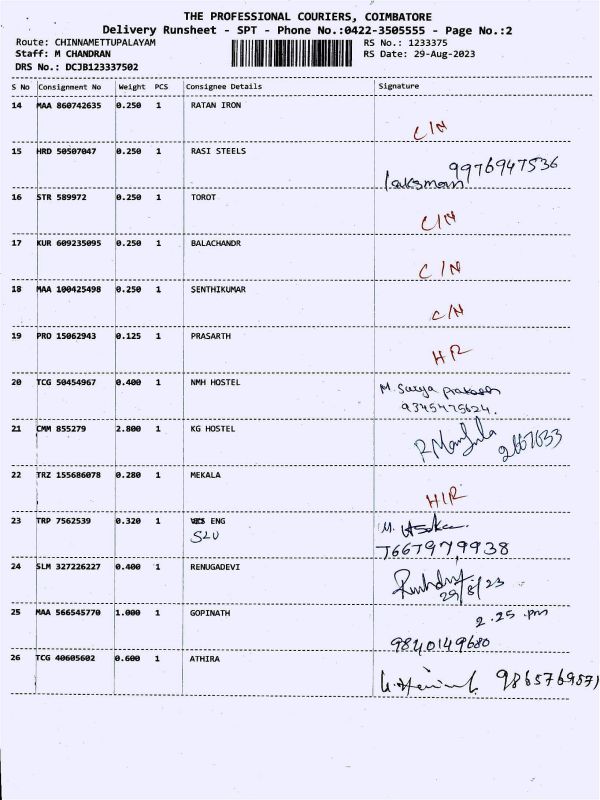 THE PROFESSIONAL COURIERS, COIMBATORE
Delivery Runsheet - SPT - Phone No.:0422-3505555 - Page No.:2
Route: CHINNAMETTUPALAYAM RS No.: 1233375
Staff: M CHANDRAN RS Date: 29-Aug-2023
DRS No.: DCJB123337502
S No Consignment No Weight PCS Consignee Details Signature
14 MAA 860742635 0.250 1 RATAN IRON
C/N
15 HRD 50507047 0.250 1 RASI STEELS
9976947536
laksman
16 STR 589972 0.250 1 TOROT
C/N
17 KUR 609235095 0.250 1 BALACHANDR
C/N
18 MAA 100425498 0.250 1 SENTHIKUMAR
C/N
19 PRO 15062943 0.125 1 PRASARTH
HR
20 TCG 50454967 0.400 1 NMH HOSTEL
M. Surya prakash
9345475624.
21 CMM 855279 2.800 1 KG HOSTEL
R Manjula 2667633
22 TRZ 155686078 0.280 1 MEKALA
H/R
23 TRP 7562539 0.320 1 ENG
SLU M.
7667979938
24 SLM 327226227 0.400 1 RENUGADEVI
29/8/23
25 MAA 566545770 1.000 1 GOPINATH
2.25 pm
9840149680
26 TCG 40605602 0.600 1 ATHIRA